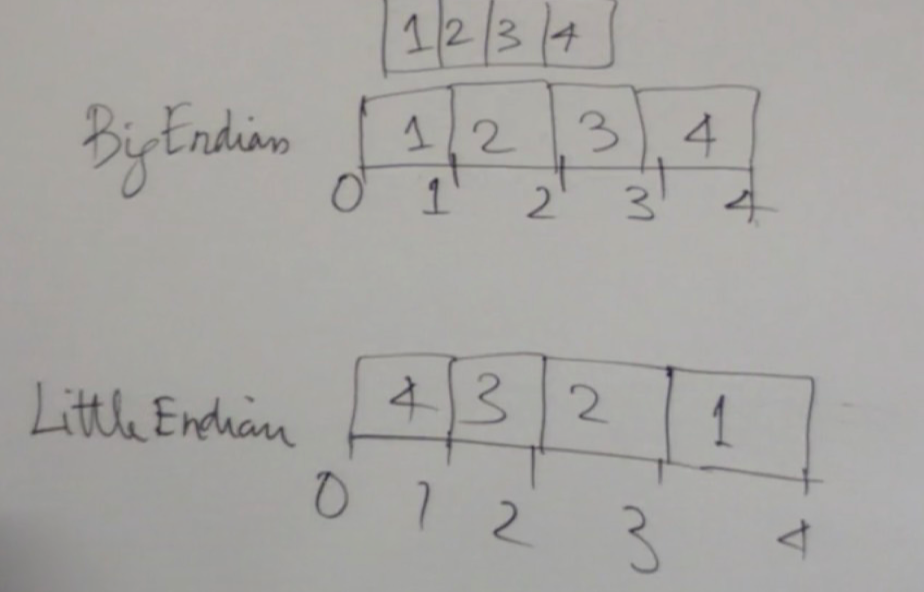 1 2 3 4
Big Endian 1 2 3 4
0 1 2 3 4
Little Endian 4 3 2 1
0 1 2 3 4